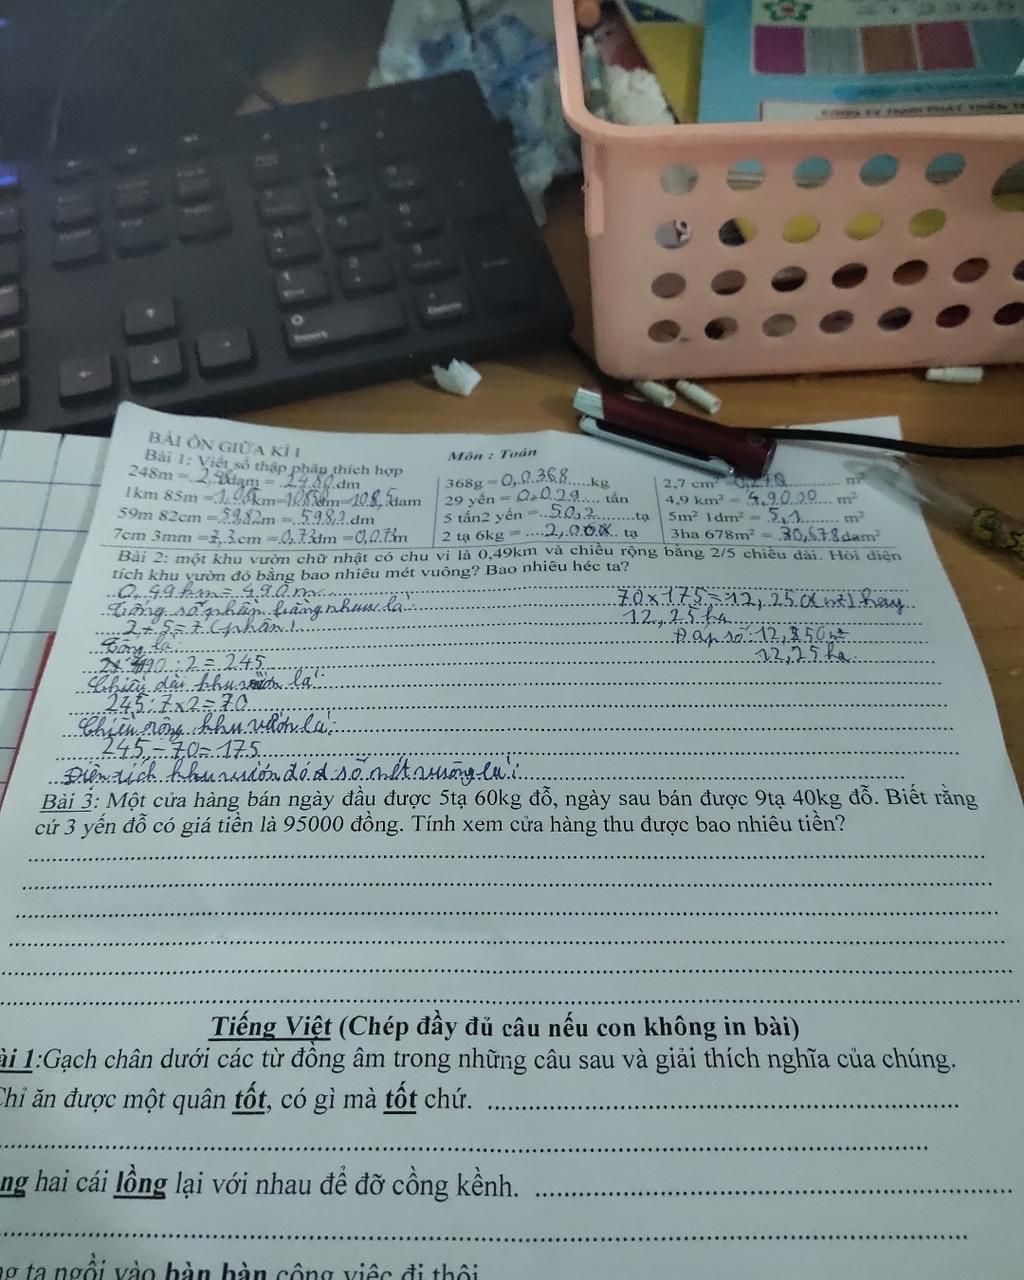 BÀI ÔN GIỮA KÌ I
Môn : Toán
Bài 1: Viết số thập phân thích hợp
248m = dam = 2480 dm
1km 85m = km= = 108,5 dam
59m 82cm = 59,82m = 598,2 dm
7cm 3mm = 7,3cm =0,73dm =0,073m
368g = 0,0368 kg
29 yến = 0,029 tấn
5 tấn2 yến = 50,2 tạ
2 tạ 6kg = tạ
2,7 cm² = m²
4,9 km² = 4,9000 m²
5m² 1dm² = 5,1 m²
3ha 678m² = 30,678dam²
Bài 2: một khu vườn chữ nhật có chu vi là 0,49km và chiều rộng bằng 2/5 chiều dài. Hỏi diện
tích khu vườn đó bằng bao nhiêu mét vuông? Bao nhiêu héc ta?
0,49km = 490m
Tổng số phần bằng nhau là:
2 + 5 = 7 (phần)
Tổng là:
490 : 2 = 245
Chiều dài khu vườn là:
245 : 7 x 2 = 70
Chiều rộng khu vườn là:
245 – 70 = 175
Diện tích khu vườn đó số mét vuông là:
70 x 175 = 12,250(m²) hay
12,25 ha
Đáp số: 12,250m²
12,25 ha
Bài 3: Một cửa hàng bán ngày đầu được 5tạ 60kg đỗ, ngày sau bán được 9tạ 40kg đỗ. Biết rằng
cứ 3 yến đỗ có giá tiền là 95000 đồng. Tính xem cửa hàng thu được bao nhiêu tiền?
Tiếng Việt (Chép đầy đủ câu nếu con không in bài)
ài 1:Gạch chân dưới các từ đồng âm trong những câu sau và giải thích nghĩa của chúng.
Chỉ ăn được một quân tốt, có gì mà tốt chứ.
ng hai cái lồng lại với nhau để đỡ cồng kềnh.
g ta ngồi vào bàn bàn công việc đi thôi